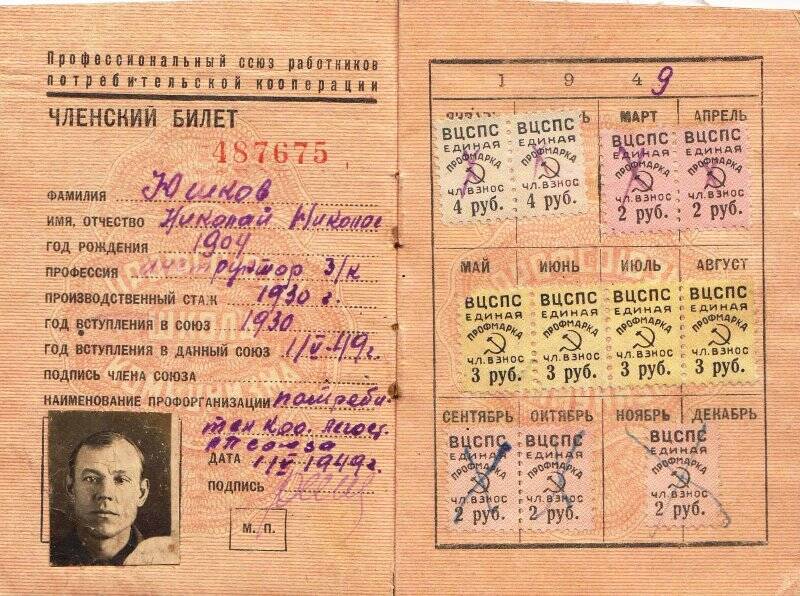 Профессиональный союз работников
потребительской кооперации
ЧЛЕНСКИЙ БИЛЕТ
487675
ФАМИЛИЯ Юшков
ИМЯ, ОТЧЕСТВО Николай Николае
ГОД РОЖДЕНИЯ 1904
ПРОФЕССИЯ инструктор З/к
ПРОИЗВОДСТВЕННЫЙ СТАЖ 1930 г.
ГОД ВСТУПЛЕНИЯ В СОЮЗ 1930
ГОД ВСТУПЛЕНИЯ В ДАННЫЙ СОЮЗ 1/V-49г.
ПОДПИСЬ ЧЛЕНА СОЮЗА
НАИМЕНОВАНИЕ ПРОФОРГАНИЗАЦИИ потреби-
союза
ДАТА 1/V 1949г.
ПОДПИСЬ
М. П.
1 9 4 9
МАРТ АПРЕЛЬ
ВЦСПС ВЦСПС ВЦСПС ВЦСПС
ЕДИНАЯ ЕДИНАЯ ЕДИНАЯ ЕДИНАЯ
ПРОФМАРКА ПРОФМАРКА ПРОФМАРКА ПРОФМАРКА
ЧЛ. ВЗНОС ЧЛ. ВЗНОС ЧЛ. ВЗНОС ЧЛ. ВЗНОС
4 руб. 4 руб. 2 руб. 2 руб.
МАЙ ИЮНЬ ИЮЛЬ АВГУСТ
ВЦСПС ВЦСПС ВЦСПС ВЦСПС
ЕДИНАЯ ЕДИНАЯ ЕДИНАЯ ЕДИНАЯ
ПРОФМАРКА ПРОФМАРКА ПРОФМАРКА ПРОФМАРКА
ЧЛ. ВЗНОС ЧЛ. ВЗНОС ЧЛ. ВЗНОС ЧЛ. ВЗНОС
3 руб. 3 руб. 3 руб. 3 руб.
СЕНТЯБРЬ ОКТЯБРЬ НОЯБРЬ ДЕКАБРЬ
ВЦСПС ВЦСПС ВЦСПС
ЕДИНАЯ ЕДИНАЯ ЕДИНАЯ
ПРОФМАРКА ПРОФМАРКА ПРОФМАРКА
ЧЛ. ВЗНОС ЧЛ. ВЗНОС ЧЛ. ВЗНОС
2 руб. 2 руб. 2 руб.